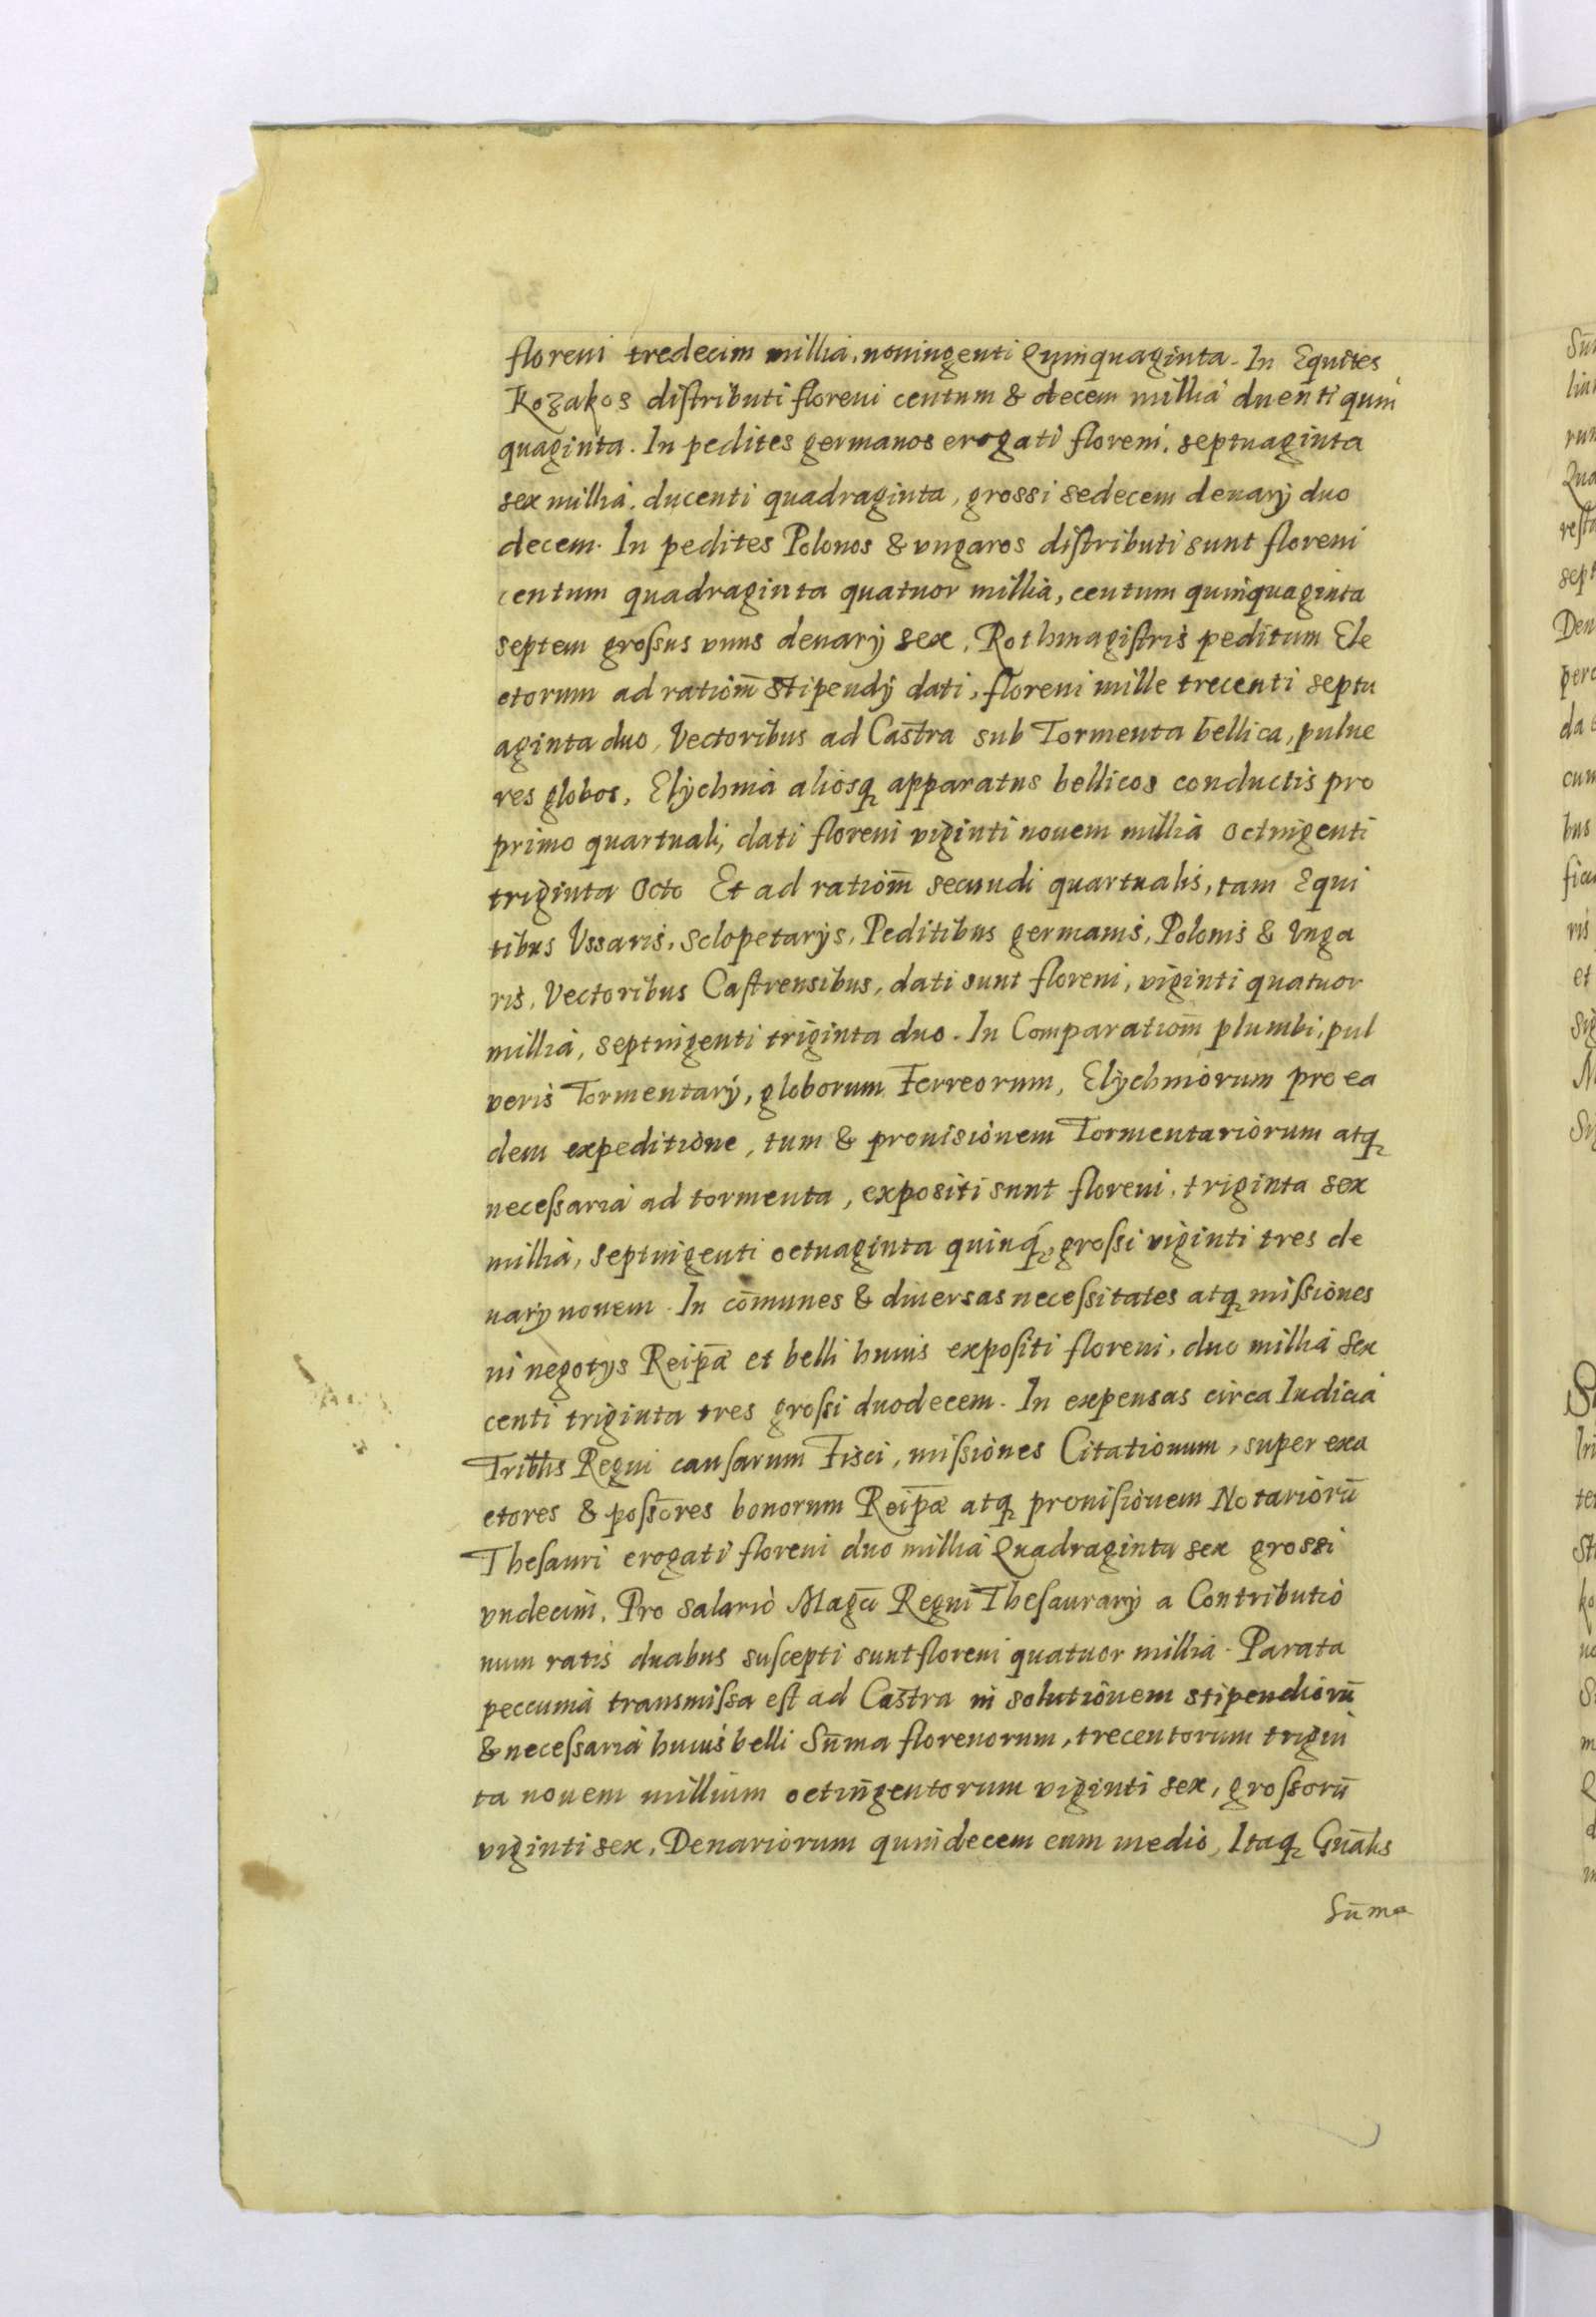 floreni tredecim millia, noningenti Quinquaginta. In Equites
Kozakos distributi floreni centum & decem millia duenti quin
quaginta. In pedites germanos erogati floreni, septuaginta
sex millia, ducenti quadraginta, grossi sedecem denarÿ duo
decem. In pedites Polonos & vngaros distributi sunt floreni
centum quadraginta quatuor millia, centum quinquaginta
septem grossus vnus denarÿ sex, Rothmagistris peditum Ele
ctorum ad ratiom̄ stipendÿ dati, floreni mille trecenti septu
aginta duo, Vectoribus ad Castra sub Tormenta bellica, pulue
res globos, Elÿchnia aliosq apparatus bellicos conductis pro
primo quartuali, dati floreni viginti nouem millia octingenti
triginta Octo Et ad ratiom̄ secundi quartualis, tam Equi
tibus Vssaris, sclopetarÿs, Peditibus germanis, Polonis & Vnga
ris, Vectoribus Castrensibus, dati sunt floreni, viginti quatuor
millia, septingenti triginta duo. In Comparatiom̄ plumbi, pul
veris Tormentarÿ, globorum Ferreorum, Elÿchniorum pro ea
dem expeditione, tum & prouisionem Tormentariorum atq
necessaria ad tormenta, expositi sunt floreni, triginta sex
millia, septingenti octuaginta quinq, grossi viginti tres de
narÿ nouem. In cōmunes & diuersas necessitates atq missiones
in negotÿs Reipā et belli huius expositi floreni, duo millia sex
centi triginta tres grossi duodecem. In expensas circa Iudicia
Tribl̄is Regni causarum Fisci, missiones Citationum, super exa
ctores & possōres bonorum Reipā atq prouisionem Notariorū
Thesauri erogati floreni duo millia Quadraginta sex grossi
vndecim, Pro salario Magc̄i Regni Thesaurarÿ a Contributio
num ratis duabus suscepti sunt floreni quatuor millia. Parata
peccunia transmissa est ad Castra in solutionem stipendiorū
& necessaria huius belli Sum̄a florenorum, trecentorum trigin
ta nouem millium octingentorum viginti sex, grossorū
viginti sex, Denariorum quindecem cum medio, Itaq Gn̄alis
Sum̄a